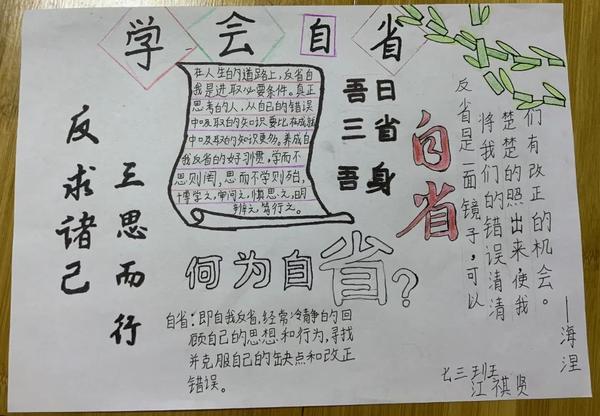 学会自省
在人生的道路上，反省自
我是进取必要条件。真正
思考的人，从自己的错误
中吸取的知识要比在成就
中吸取的知识更多。养成自
我反省的好习惯，学而不
思则罔，思而不学则殆，
博学之，审问之，慎思之，明
辨之，笃行之。
吾日
三省
吾身
自省
反省是一面镜子，可以
将我们的错误清清
楚楚的照出来，使我
们有改正的机会。
——海涅
反求诸己
三思而行
何为自省？
自省：即自我反省，经常冷静的回
顾自己的思想和行为，寻找
并克服自己的缺点和改正
错误。
七三班
江祺贤